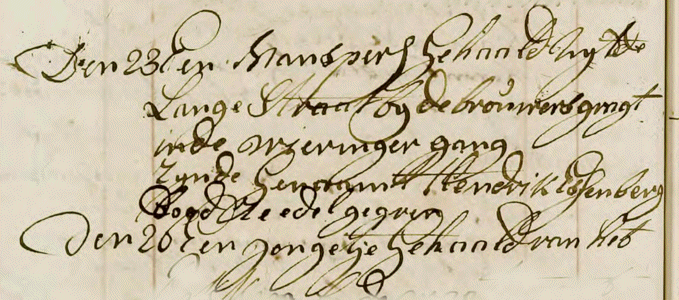 Den 23 Een Manspers gehaald uytte
Lange Straat by de brouwersgragt
in de wieringer gang
zynde genaamt Hendrik Essenberg
Den 26 Een Jongetje gehaald van het